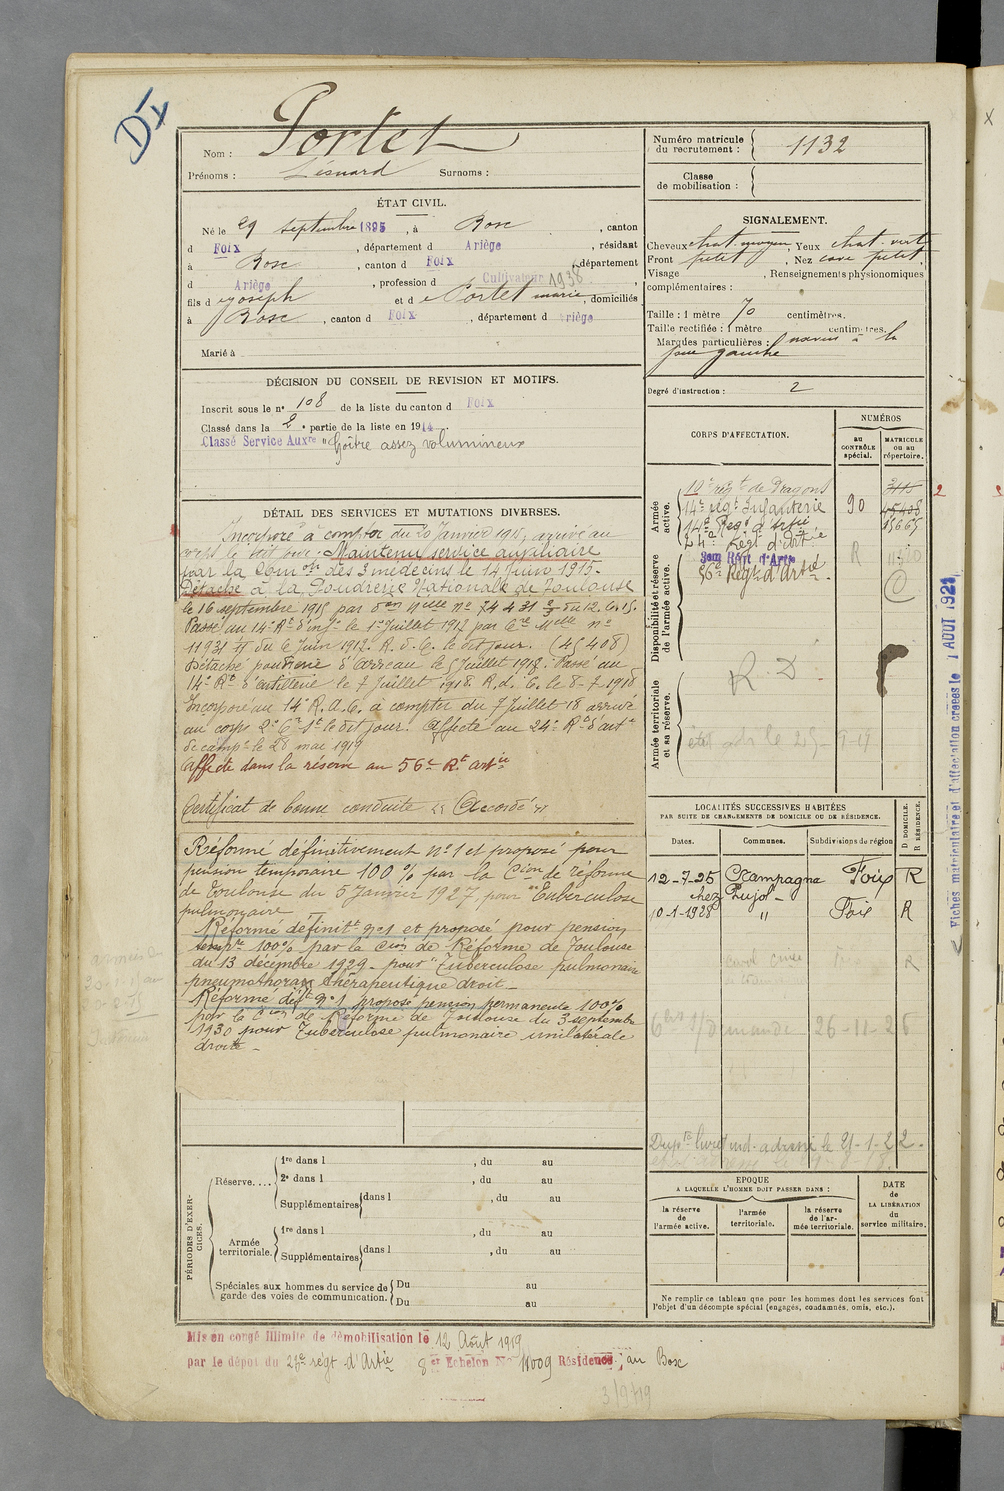 DI
Nom : Portet
Prénoms : Léonard Surnoms :
Numéro matricule du recrutement : 1132
Classe de mobilisation :
ÉTAT CIVIL.
Né le 29 septembre 1895, à Bosc, canton
d Foix, département d Ariège, résidant
à Bosc, canton d Foix, département
d Ariège, profession d Cultivateur 1938
fils d Joseph et d e Portet marie, domiciliés
à Bosc, canton d Foix, département d Ariège
Marié à
SIGNALEMENT.
Cheveux chat. moyen, Yeux chat. vert
Front petit, Nez cave petit,
Visage , Renseignements physionomiques
complémentaires :
Taille : 1 mètre 70 centimètres.
Taille rectifiée : 1 mètre centimètres.
Marques particulières : nævus à la
joue gauche
Degré d'instruction : 2
DÉCISION DU CONSEIL DE REVISION ET MOTIFS.
Inscrit sous le n° 108 de la liste du canton d Foix
Classé dans la 2e partie de la liste en 1914.
Classé Service Auxre "Goître assez volumineux
DÉTAIL DES SERVICES ET MUTATIONS DIVERSES.
Incorporé à compter du 20 Janvier 1915, arrivé au
corps le dit jour. Maintenu service auxiliaire
par la Comon des 3 médecins le 14 Juin 1915.
Détaché à la Poudrerie Nationale de Toulouse
le 16 septembre 1915 par
Passé au 14e Rt d'infie le 1er Juillet 1912 par
11931 du 6 Juin 1912. R. d. C. le dit jour. (45408)
Détaché poudrerie d'arreau le 5 Juillet 1918. Passé au
14e Rt d'artillerie le 7 Juillet 1918. R. d. C. le 8-7-1918
Incorporé au 14e R. A. C. à compter du 7 Juillet 18 arrivé
au corps le dit jour. Affecté au 24e Rt d'art
de campe le 28 mai 1919
Affecté dans la réserve au 56e Rt artie
Certificat de bonne conduite "Accordé"
Réformé définitivement n° 1 et proposé pour
pension temporaire 100% par la Cion de réforme
de Toulouse du 5 Janvier 1927, pour "Tuberculose
pulmonaire
Réformé définitt n° 1 et proposé pour pension
tempre 100% par la Cion de Réforme de Toulouse
du 13 décembre 1929 - pour "Tuberculose pulmonaire
pneumothorax thérapeutique droit -
Réformé déft n° 1 proposé pension permanente 100%
par la Cion de Réforme de Toulouse du 3 septembre
1930 pour Tuberculose pulmonaire unilatérale
droite -
CORPS D'AFFECTATION.
NUMÉROS
au CONTRÔLE spécial.
MATRICULE ou au répertoire.
Armée active.
10e régt de Dragons
14e régt Infanterie 90 45408
14e Régt d'artie 15665
24e Régt d'artie
Disponibilité et réserve de l'armée active.
3em Rgt d'Arte R
56e Régt d'artie
R. D
Armée territoriale et sa réserve.
LOCALITÉS SUCCESSIVES HABITÉES
PAR SUITE DE CHANGEMENTS DE DOMICILE OU DE RÉSIDENCE.
Dates. Communes. Subdivisions de région D DOMICILE. R RÉSIDENCE.
12-7-25 Campagna Foix R
chez Pujol -
10-1-1928 " Foix R
R
demande 26-11-25
Dupta livret ind. adressé le 21-1-22.
EPOQUE
A LAQUELLE L'HOMME DOIT PASSER DANS :
la réserve de l'armée active.
l'armée territoriale.
la réserve de l'armée territoriale.
DATE de LA LIBÉRATION du service militaire.
Ne remplir ce tableau que pour les hommes dont les services font
l'objet d'un décompte spécial (engagés, condamnés, omis, etc.).
PÉRIODES D'EXERCICES.
Réserve....
1re dans l , du au
2e dans l , du au
Supplémentaires dans l , du au
Armée territoriale.
1re dans l , du au
Supplémentaires dans l , du au
Spéciales aux hommes du service de garde des voies de communication.
Du au
Du au
Mis en congé illimité de démobilisation le 12 Août 1919
par le dépôt du régt d'Artie 8e Echelon No Résidence au Bosc
3/9/19
Fiches matriculaire et d'affectation créées le 1 AOUT 1921